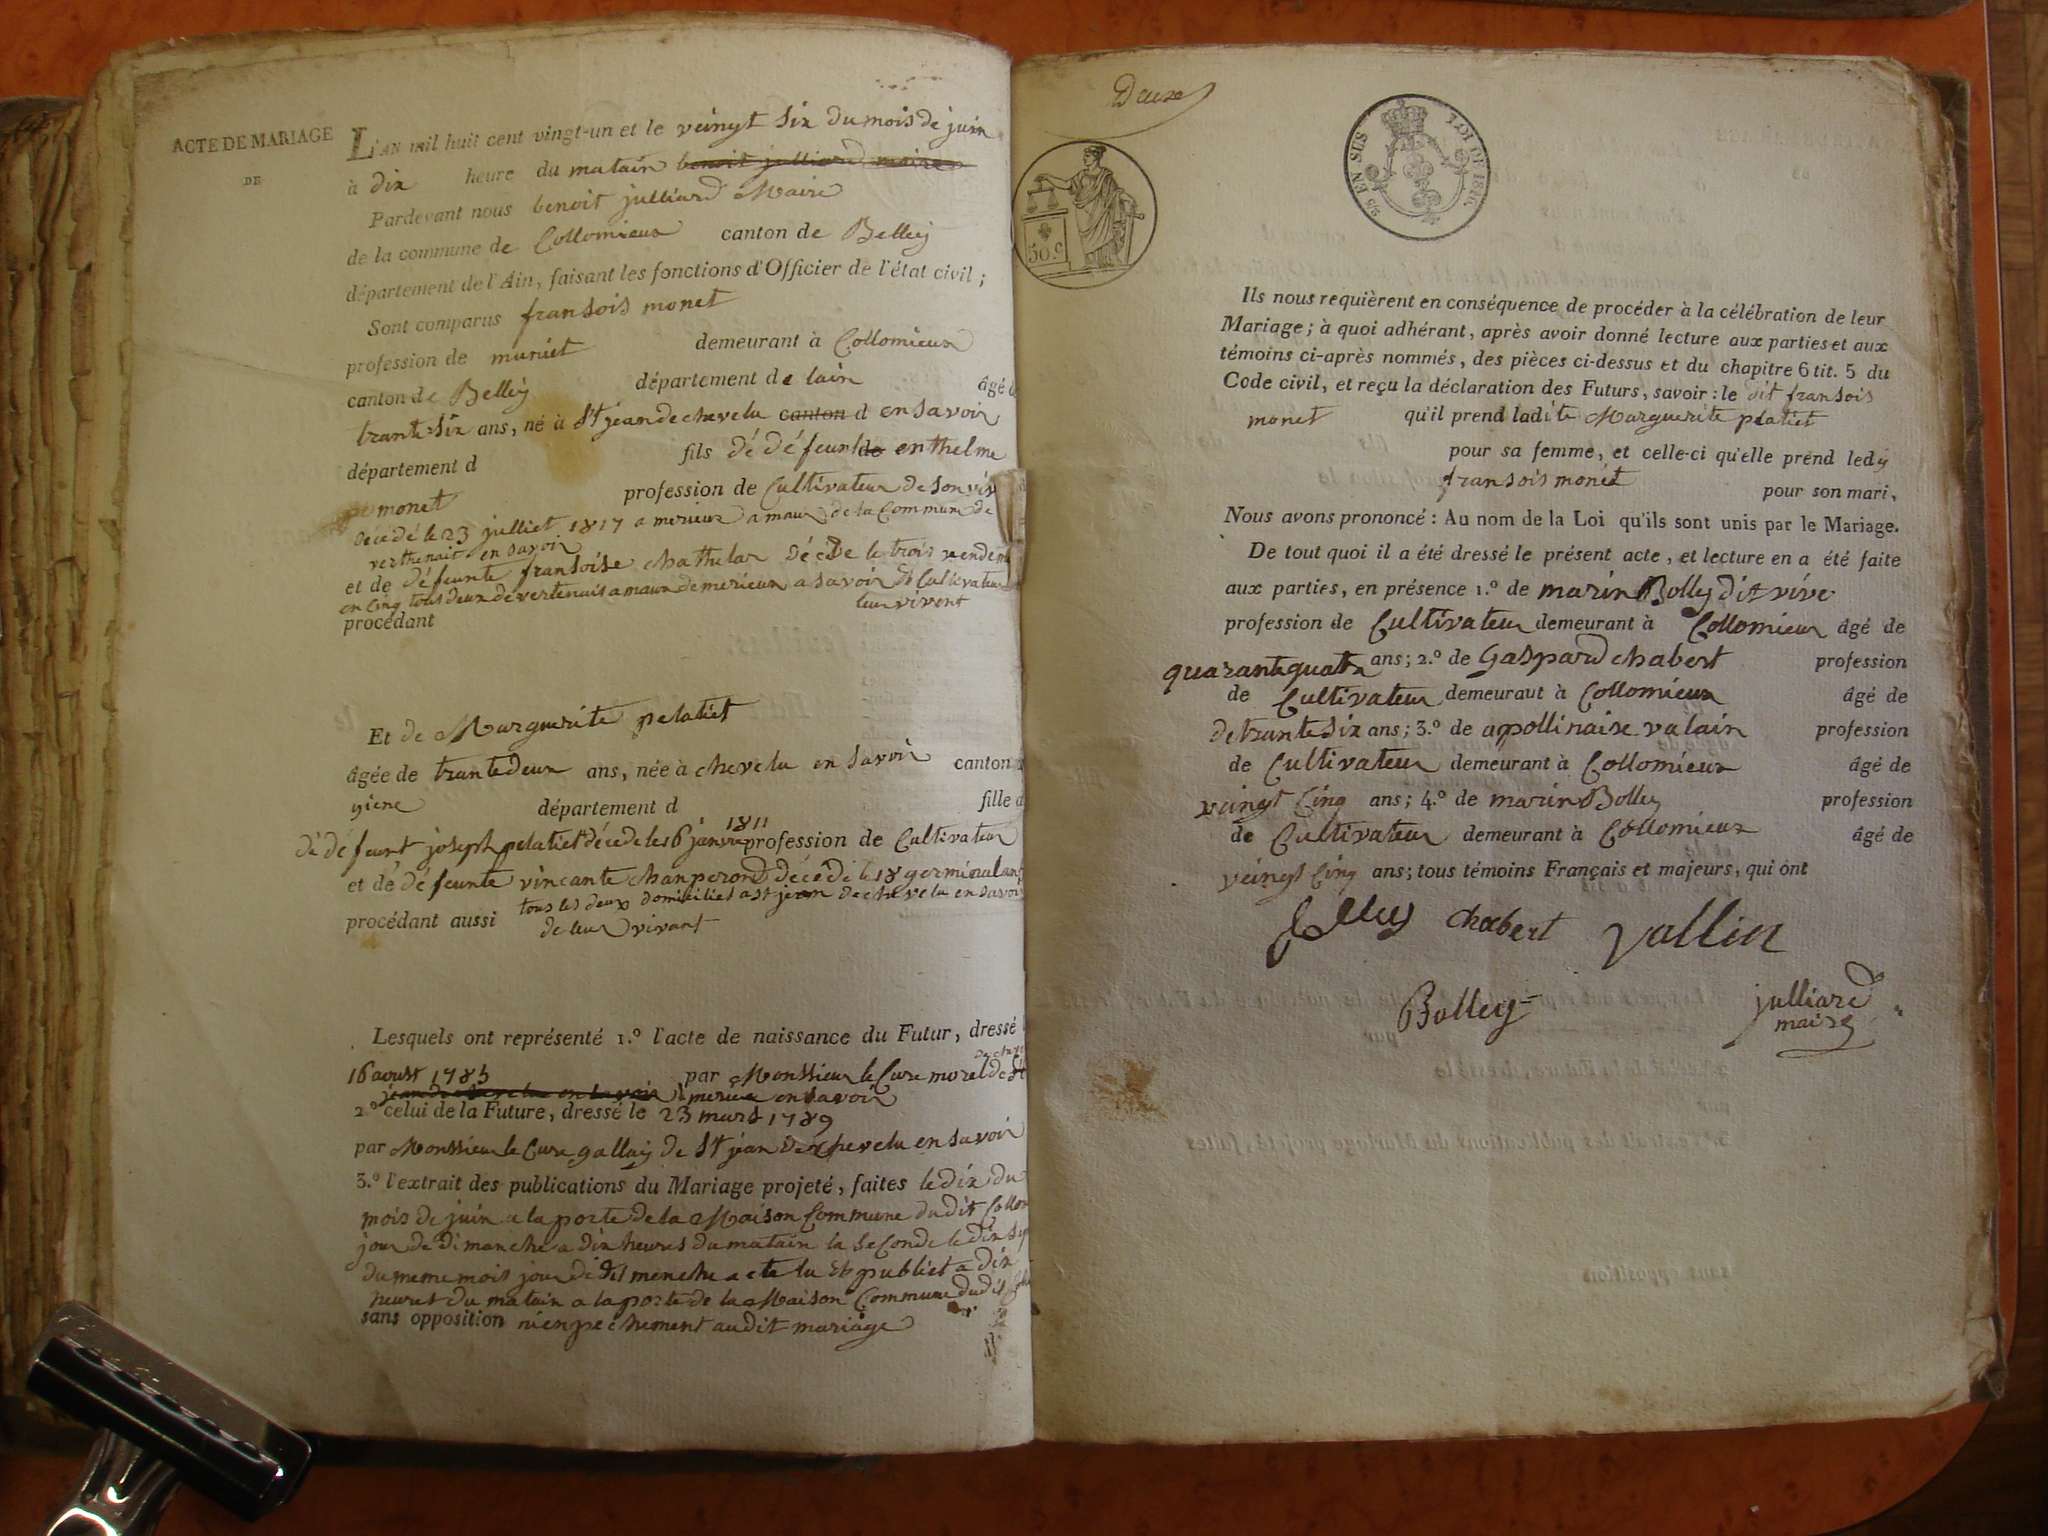 ACTE DE MARIAGE
DE
L'AN mil huit cent vingt-un et le veingt six du mois de juin
à dix heure du matain benoit julliard maire
Pardevant nous benoit julliard Maire
de la commune de Collomieux canton de Belley
département de l'Ain, faisant les fonctions d'Officier de l'état civil;
Sont comparus fransois monet
profession de muniét demeurant à Collomieux
canton de Belley département de lain âgé d
trante six ans, né à St jean de chevelu canton d en savoir
département d fils dé défeunt de enthelme
monet profession de Cultivateur de son viv
décédé le 23 julliet 1817 a merieux a maux de la Commune de
verthenait en savoir
et de défeunte fransoise chathelar décéde le trois vendem
en cinq tous deux de vertenais a maux de merieux a savoir Cultivateur
procédant leur vivent
Et de Marguerite pelatiet
âgée de trante deux ans, née à chevelu en savoir canton d
yiene département d fille d
dé défeunt joseph pelatiet décéde le 16 janvie 1811 profession de Cultivateur
et dé défeunte vincante chanperond décédé le 18 germinal an
tous les deux domiciliet a st jean de chevelu en savoir
procédant aussi de leur vivant
Lesquels ont représenté 1.º l'acte de naissance du Futur, dressé
16 aoust 1785 par Monssieur le Cure morel de St
jean de chevelu en savoir merieu en savoir
2.º celui de la Future, dressé le 23 mars 1789
par Monssieur le Cure gallay de St jean de Chevelu en savoir
3.º l'extrait des publications du Mariage projeté, faites le dix du
mois de juin a la porte de la Maison Commune du dit Collom
jour de dimanche a dix heures du matain la seconde le dix sep
du meme mois jour de dimenche a ete lu et publiet a dix
heures du matain a la porte de la Maison Commune du dit
sans opposition ni enpechement au dit mariage
Deux
50 c
25 EN SUS LOI DE 1816.
Ils nous requièrent en conséquence de procéder à la célébration de leur
Mariage; à quoi adhérant, après avoir donné lecture aux parties et aux
témoins ci-après nommés, des pièces ci-dessus et du chapitre 6 tit. 5 du
Code civil, et reçu la déclaration des Futurs, savoir: le dit fransois
monet qu'il prend ladite Marguerite platiet
pour sa femme, et celle-ci qu'elle prend ledy
fransois monét pour son mari,
Nous avons prononcé: Au nom de la Loi qu'ils sont unis par le Mariage.
De tout quoi il a été dressé le présent acte, et lecture en a été faite
aux parties, en présence 1.º de marin Bolley dit vive
profession de Cultivateur demeurant à Collomieux âgé de
quarante quatre ans; 2.º de Gaspard chabert profession
de Cultivateur demeurant à Collomieux âgé de
de trante six ans; 3.º de apollinaire valain profession
de Cultivateur demeurant à Collomieux âgé de
veingt Cinq ans; 4.º de marin Bolley profession
de Cultivateur demeurant à Collomieux âgé de
veingt Cinq ans; tous témoins Français et majeurs, qui ont
chabert vallin
Bolley julliard
maire